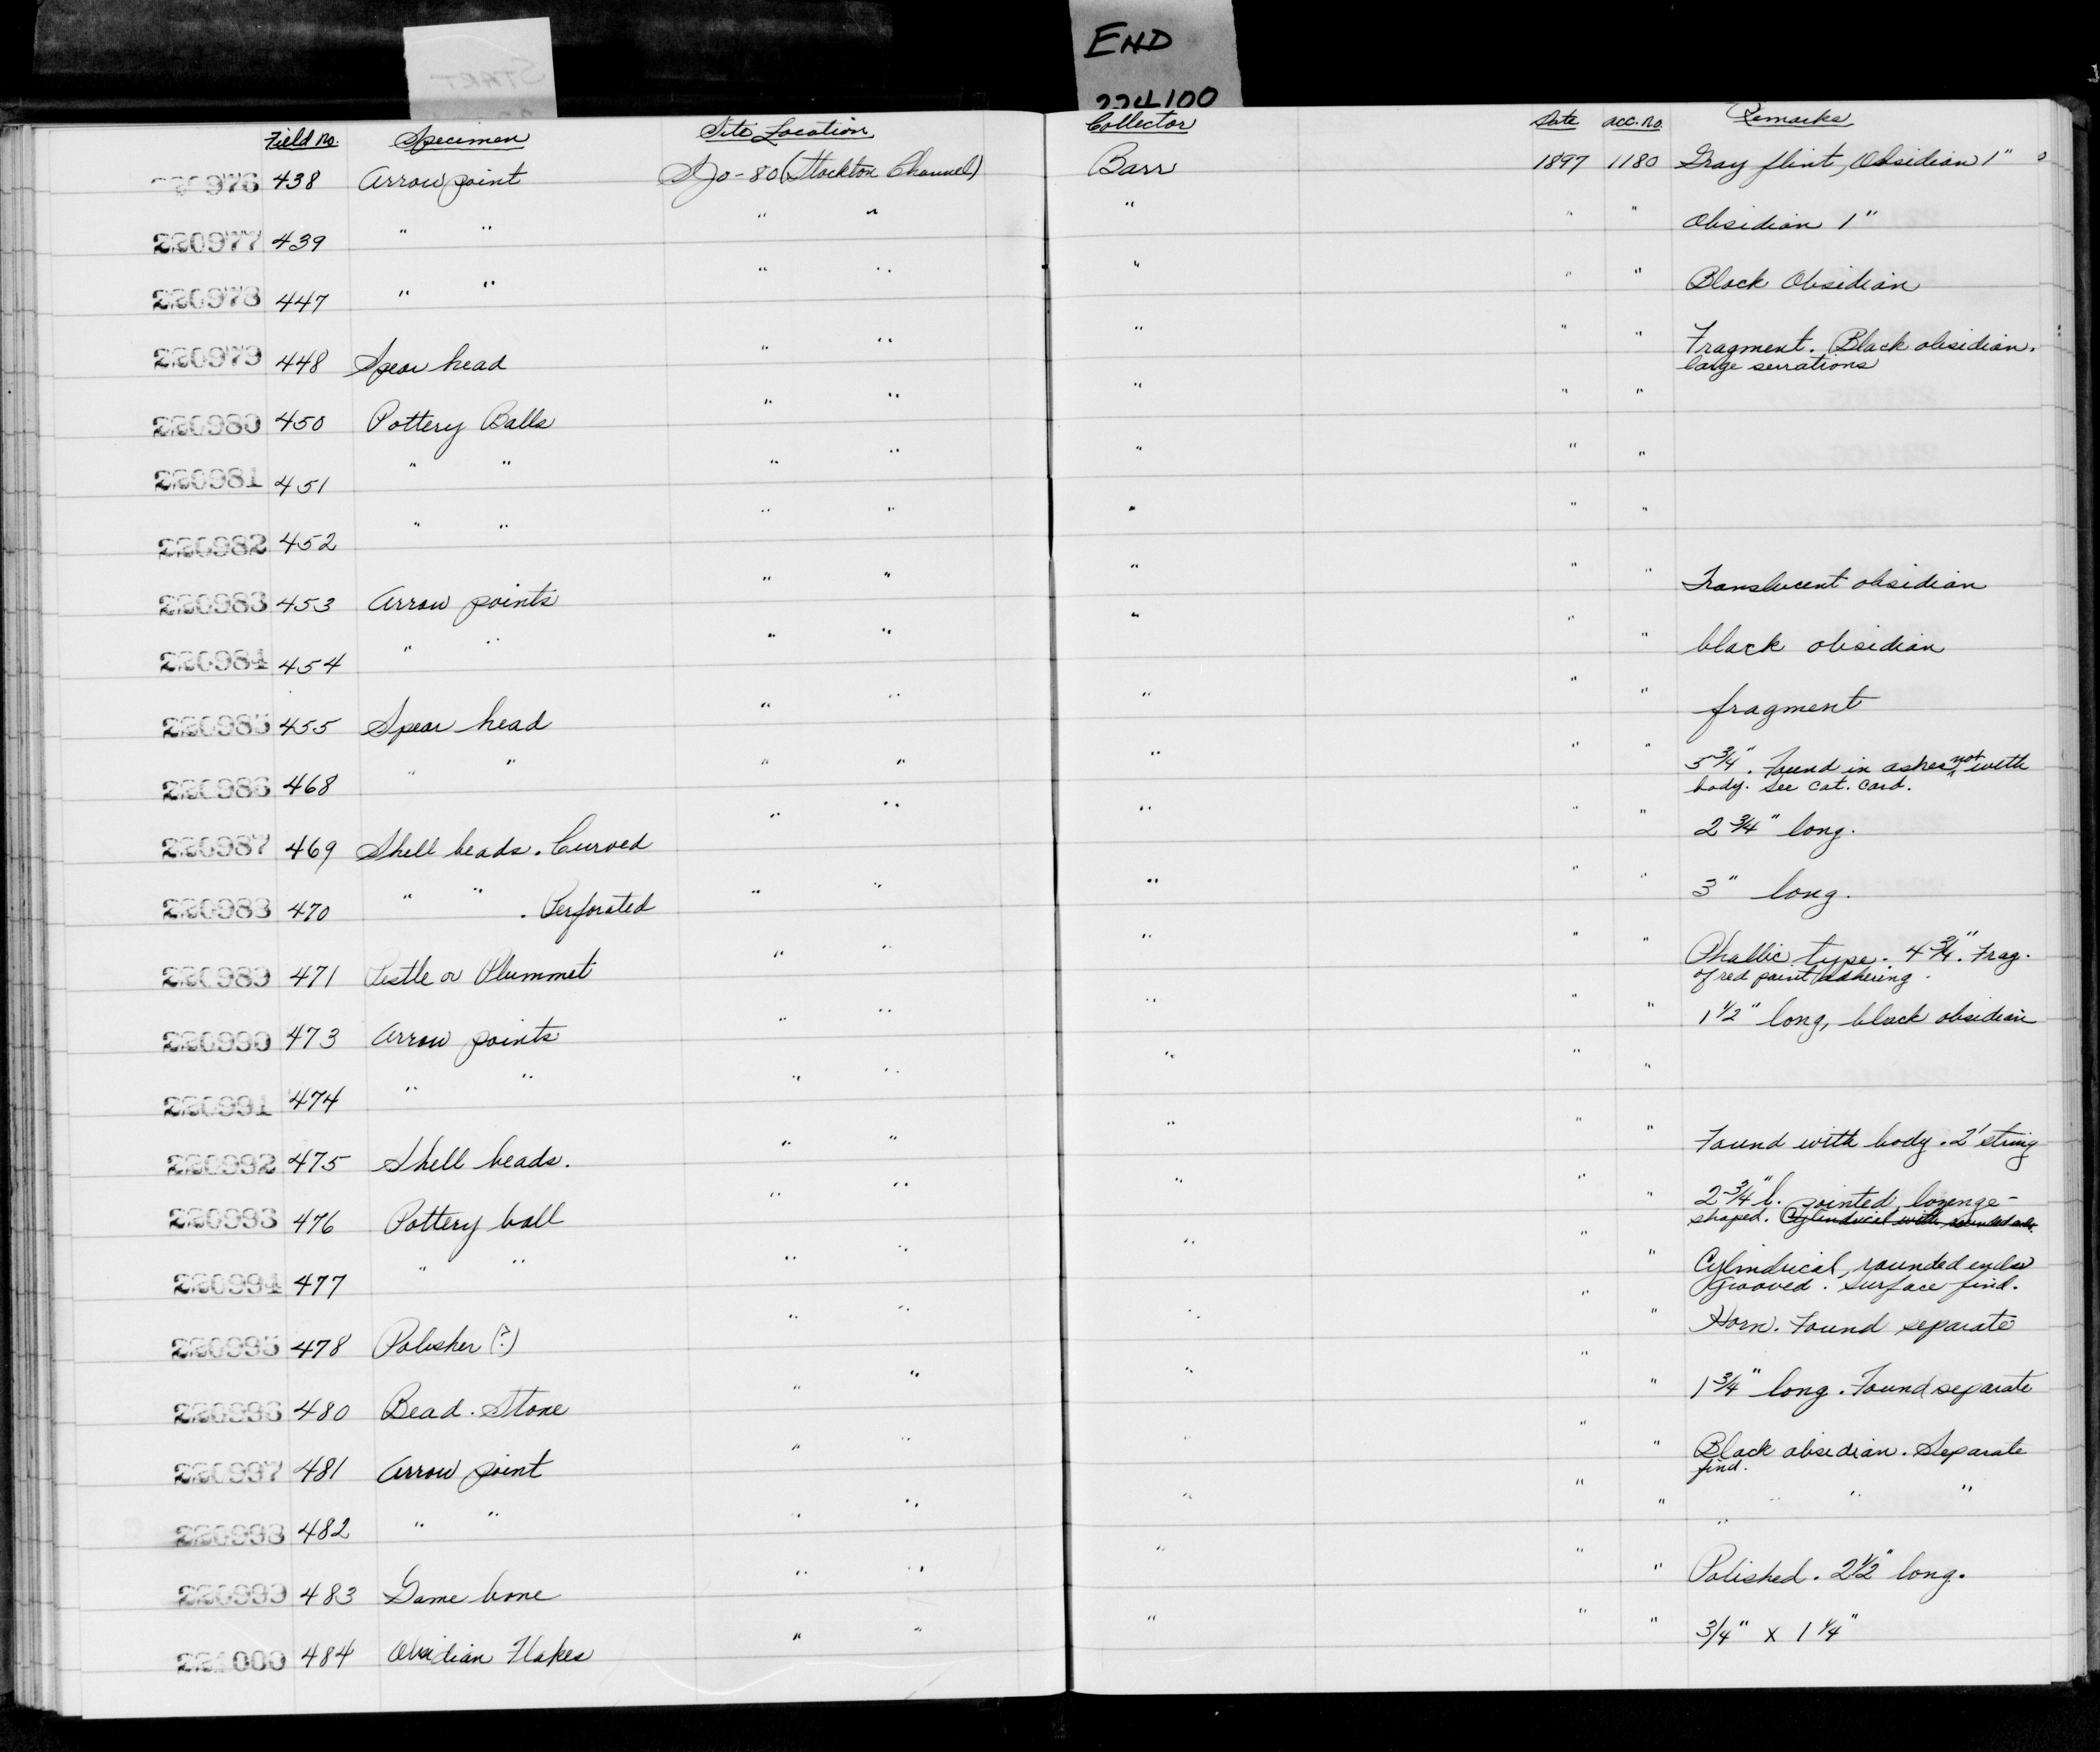 START
END
224100
Field No. Specimen Site Location Collector Date acc. no. Remarks
220976 438 Arrow point SJo-80 (Stockton Channel) Barr 1897 1180 Gray flint, Obsidian 1"
220977 439 " " " " " " " Obsidian 1"
220978 447 " " " " " " " Black Obsidian
220979 448 Spear head " " " " " Fragment. Black obsidian.
large serrations
220980 450 Pottery Balls " " " " "
220981 451 " " " " " " "
220982 452 " " " " " " "
220983 453 Arrow points " " " " " Translucent obsidian
220984 454 " " " " " " " black obsidian
220985 455 Spear head " " " " " fragment
220986 468 " " " " " " " 5 3/4". Found in ashes, not with
body. See cat. card.
220987 469 Shell beads. Curved " " " " " 2 3/4" long.
220988 470 " " . Perforated " " " " " 3" long.
220989 471 Pestle or Plummet " " " " " Phallic type. 4 3/4". Frag.
of red paint adhering.
220990 473 Arrow points " " " " " 1 1/2" long, black obsidian
220991 474 " " " " " " "
220992 475 Shell beads. " " " " " Found with body. 2' string
220993 476 Pottery ball " " " " " 2 3/4" l. pointed, lozenge-
shaped. Cylindrical with rounded ends.
220994 477 " " " " " " " Cylindrical, rounded ends
Grooved. Surface find.
220995 478 Polisher (?) " " " " " Horn. Found separate
220996 480 Bead. Stone " " " " " 1 3/4" long. Found separate
220997 481 Arrow point " " " " " Black obsidian. Separate
find.
220998 482 " " " " " " " " " "
"
220999 483 Game bone " " " " " Polished. 2 1/2" long.
221000 484 Obsidian Flakes " " " " " 3/4" x 1 1/4"